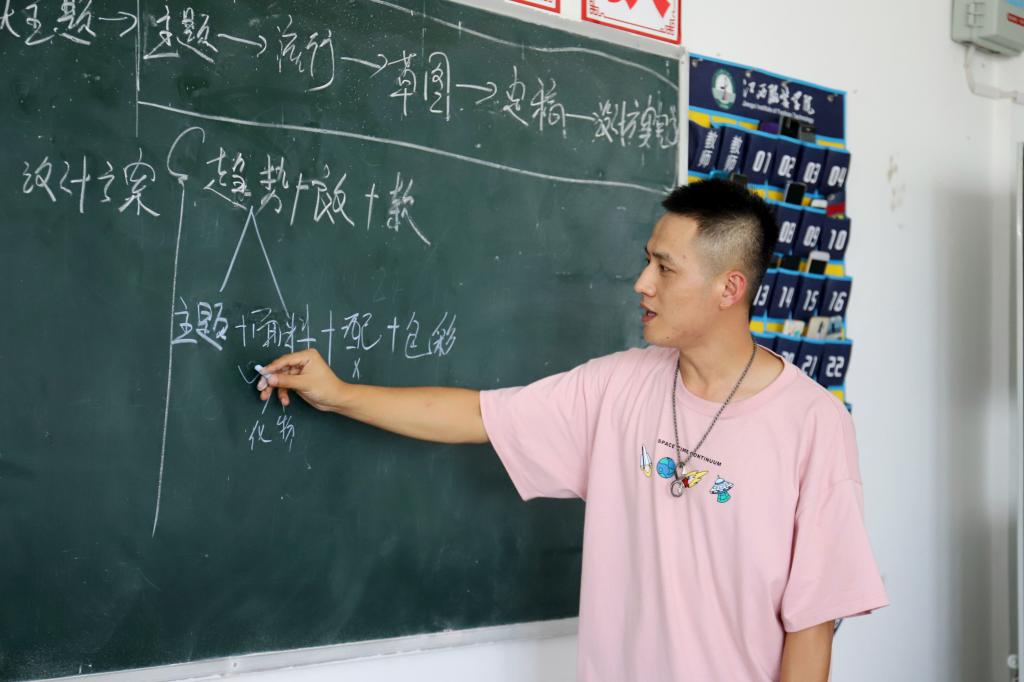 大主题→主题→流行→草图→电稿—设计方案
设计方案 趋势+廓+款
主题+面料+配+色彩
x
化 物
江西服装学院
Jiangxi Institute of Fashion Technology
教师 教师 01 02 03 04
08 09 10
13 14 15 16
21 22
SPACE TIME CONTINUUM